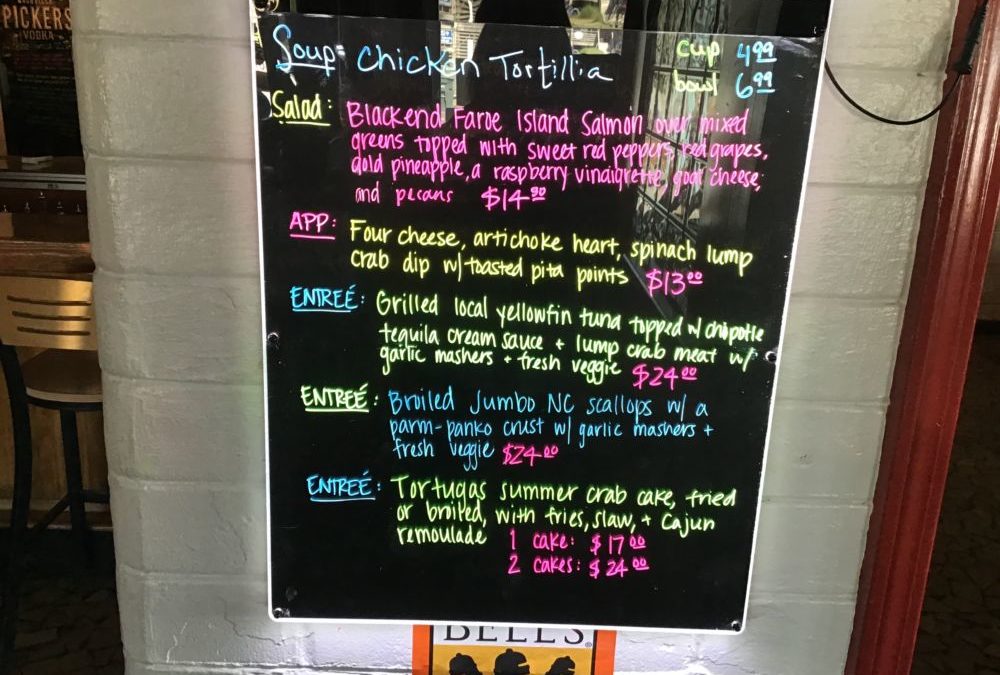 PICKERS
VODKA
Soup: Chicken Tortillia
cup 4.99
bowl 6.99
Salad: Blackend Faroe Island Salmon over mixed
greens topped with sweet red peppers, red grapes,
gold pineapple, a raspberry vinaigrette, goat cheese,
and pecans $14.90
APP: Four cheese, artichoke heart, spinach lump
crab dip w/toasted pita points $13.00
ENTREÉ: Grilled local yellowfin tuna topped w/ chipotle
tequila cream sauce + lump crab meat w/
garlic mashers + fresh veggie $24.00
ENTREÉ: Broiled Jumbo NC scallops w/ a
parm-panko crust w/ garlic mashers +
fresh veggie $24.00
ENTREÉ: Tortugas summer crab cake, fried
or broiled, with fries, slaw, + Cajun
remoulade 1 cake: $17.00
2 cakes: $24.00
BELL'S